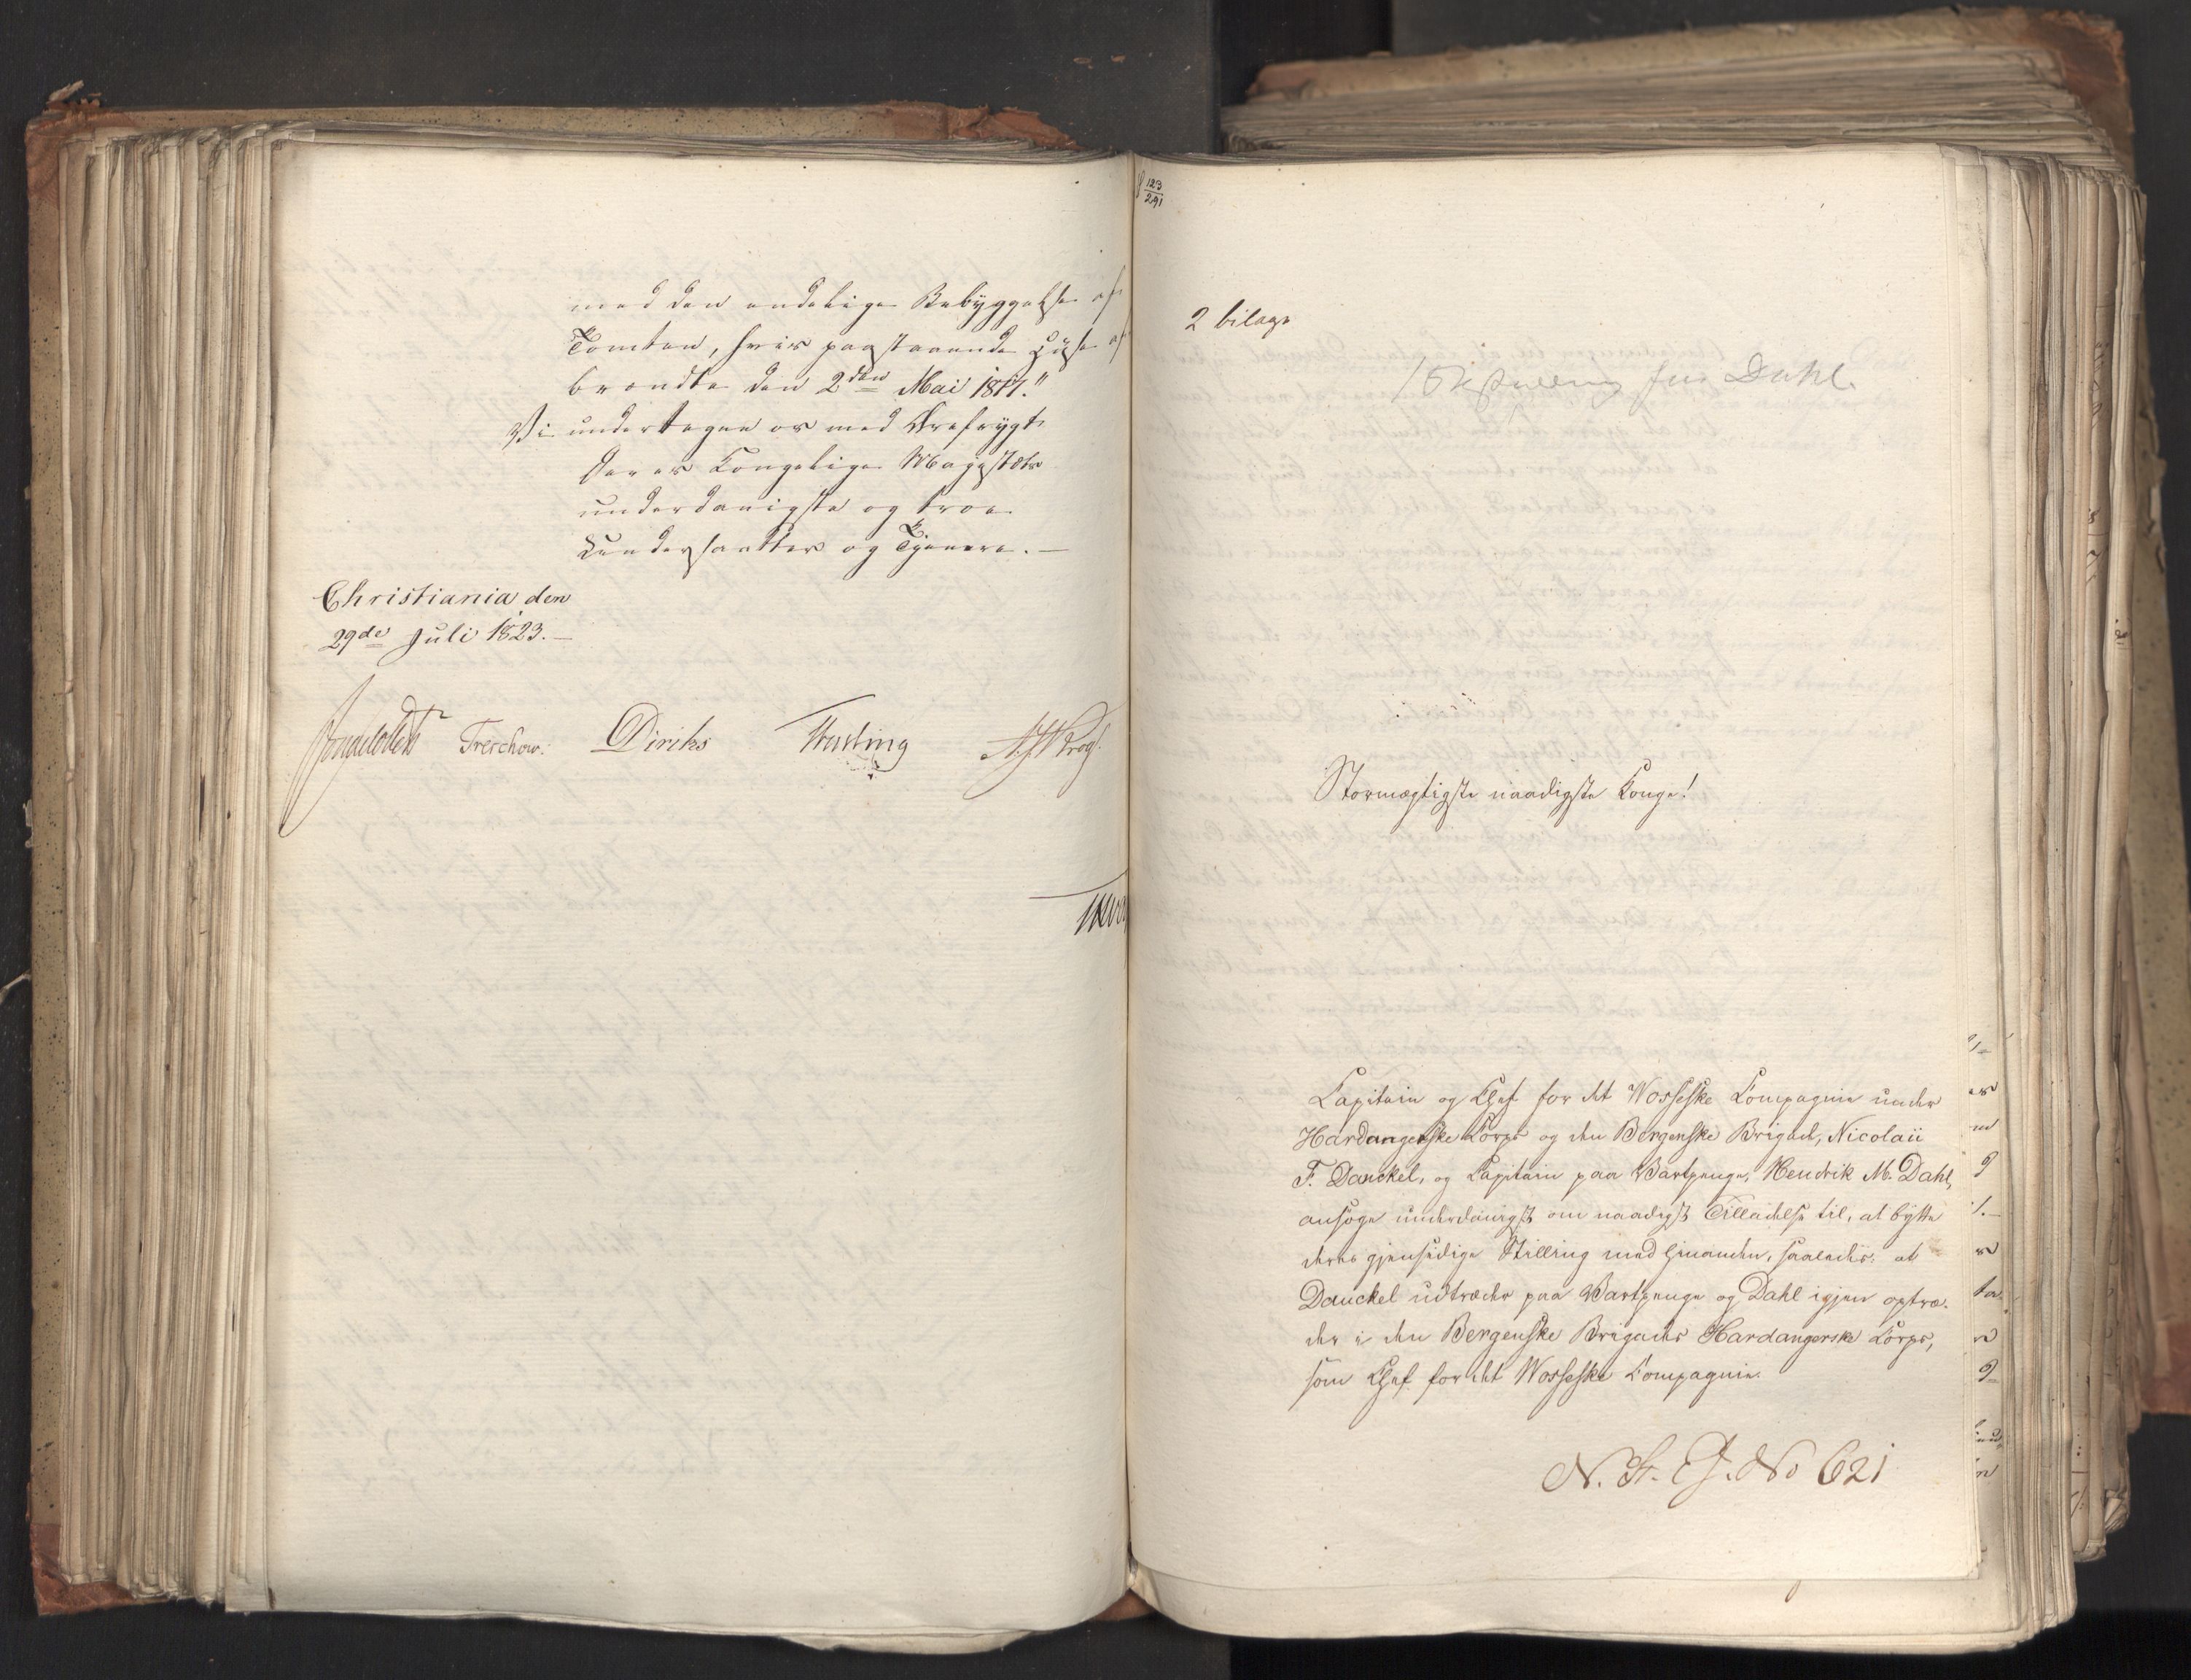 med den endelige Bebyggelse af
Tomten, hvis paastaaende Huse af
brændte den 2den Mai 1817."
Vi undertegne os med Ærefrygt
Deres Kongelige Majestæts
underdanigste og troe
Undersaatter og Tjenere.—
Christiania den
29de Juli 1823.—
Treschow. Diriks
123
291
2 bilage
for Dahl.
Stormægtigste naadigste Konge!
Capitain og Chef for det Wosseske Compagnie under
Hardangerske Corps og den Bergenske Brigade, Nicolaii
F. Danckel, og Capitain paa Vartpenge, Hendrik M. Dahl,
ansøge underdanigst om naadigst Tilladelse til, at bytte
deres gjensidige Stilling med hinanden, saaledes, at
Danckel udtræder paa Vartpenge og Dahl igjen optræ-
der i den Bergenske Brigades Hardangerske Corps,
som Chef for det Wosseske Compagnie.
N. St. C. J. No 621